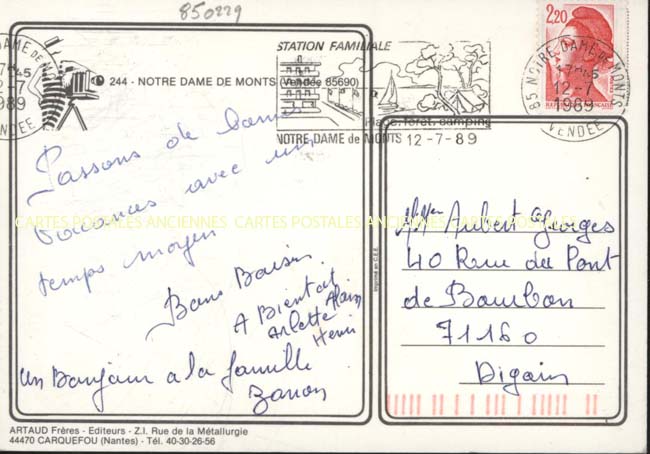 850229
244 - NOTRE DAME DE MONTS (Vendée 85690)
STATION FAMILIALE
Plage, forêt, camping
NOTRE DAME de MONTS 12-7-89
2,20
85 NOTRE-DAME-DE-MONTS
17H45
12-7
1989
VENDEE
Passons de bonnes
vacances avec un
temps moyen
Bons Baisers
A Bientot
Alain
Arlette
Henri
un Bonjour a la famille
Zanon
CARTES POSTALES ANCIENNES CARTES POSTALES ANCIENNES CARTES POSTALES ANCIENNES
Aubert Georges
40 Rue du Pont
de Bourbon
71160
Digoin
Imprimé en C.E.E.
ARTAUD Frères - Editeurs - Z.I. Rue de la Métallurgie
44470 CARQUEFOU (Nantes) - Tél. 40-30-26-56